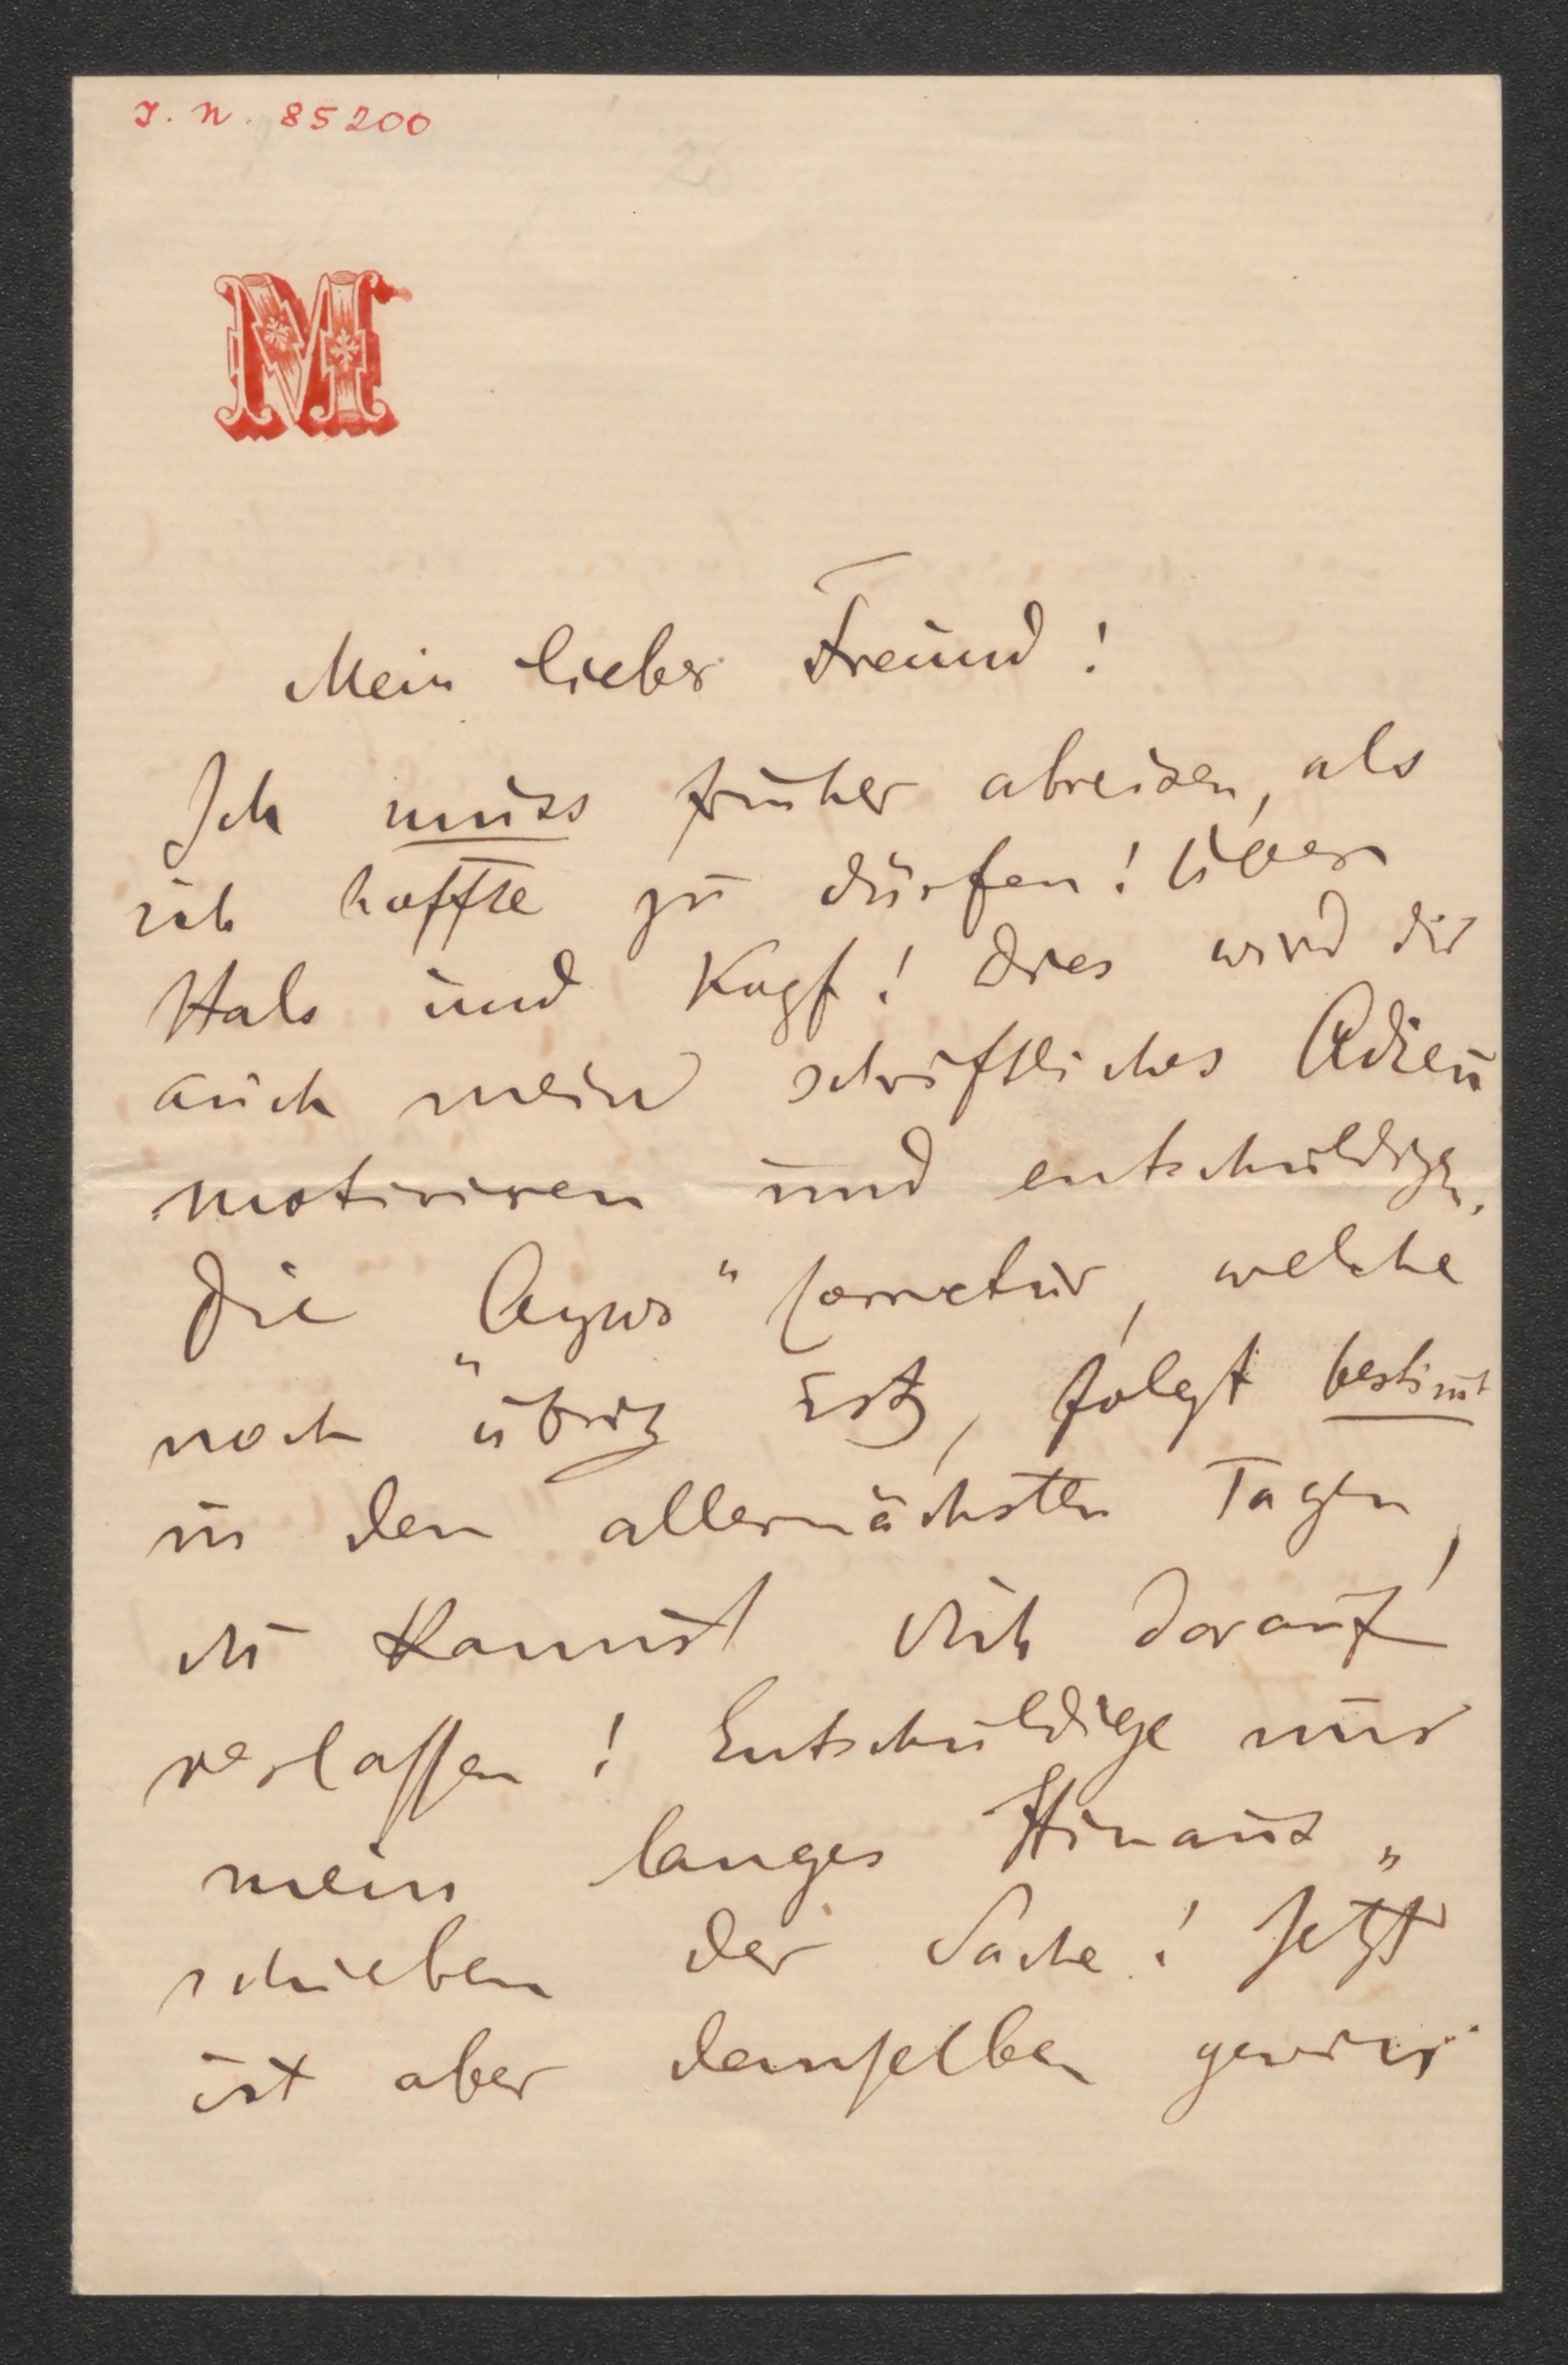 J. N. 85200
M
Mein lieber Freund!
Ich muss früher abreisen, als
ich hoffte zu dürfen! Über
Hals und Kopf! Dies wird dir
auch mein schriftliches Adieu
motiviren und entschuldigen.
Die " Correctur, welche
noch übrig ist, folgt bestimt
in den allernächsten Tagen,
du kannst dich darauf
verlassen! Entschuldige nur
mein langes Hinaus„
schieben der Sache! Jetzt
ist aber demselben gewiss